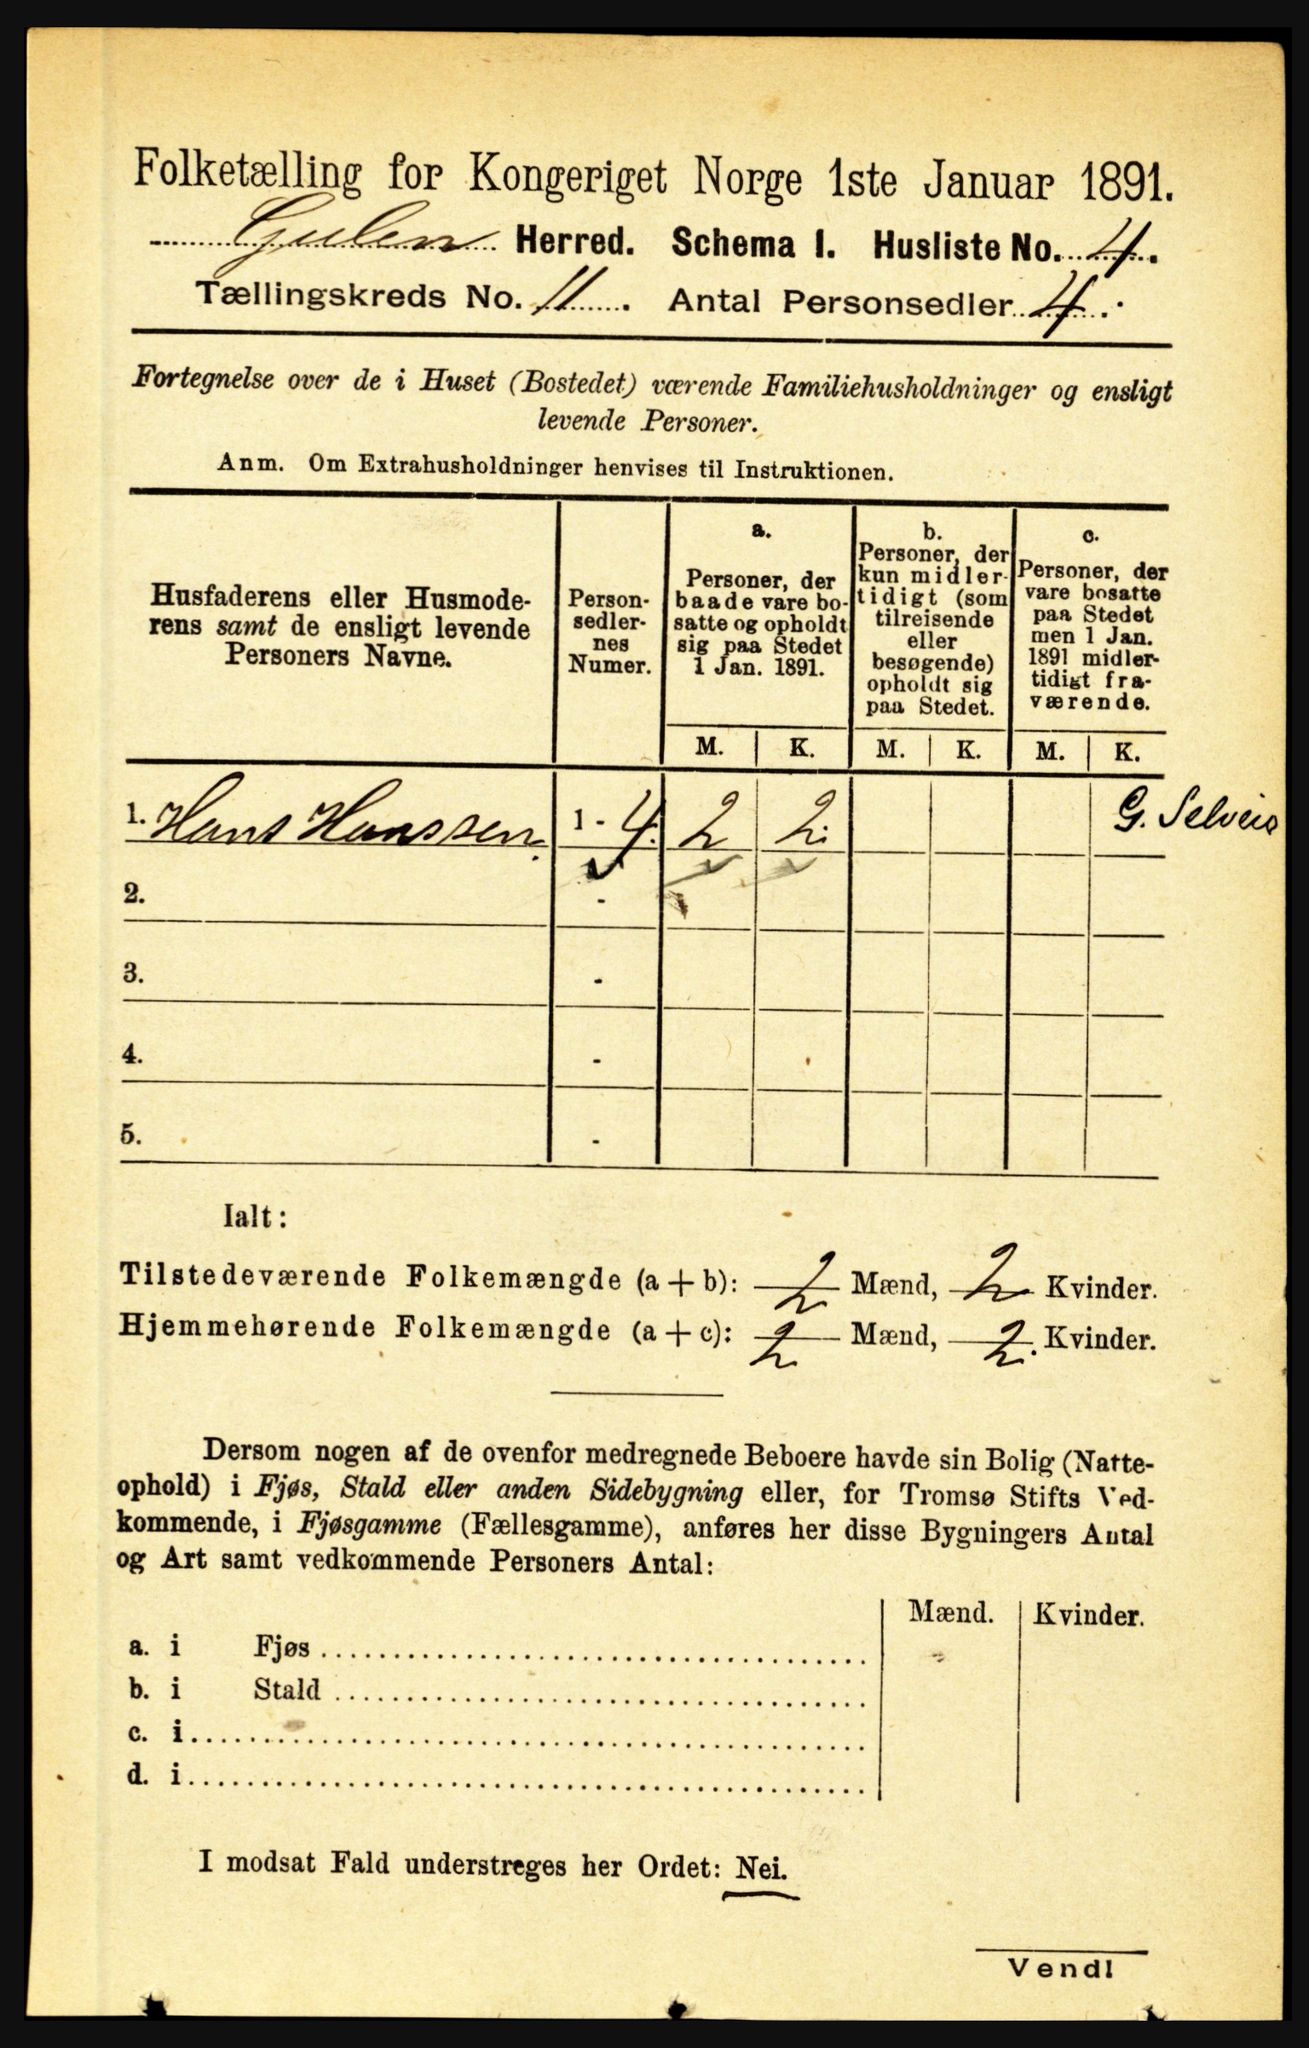 Folketælling for Kongeriget Norge 1ste Januar 1891.
Gulen Herred. Schema I. Husliste No. 4.
Tællingskreds No. 11. Antal Personsedler 4.
Fortegnelse over de i Huset (Bostedet) værende Familiehusholdninger og ensligt
levende Personer.
Anm. Om Extrahusholdninger henvises til Instruktionen.
Husfaderens eller Husmode-
rens samt de ensligt levende
Personers Navne.
Person-
sedler-
nes
Numer.
a.
Personer, der
baade vare bo-
satte og opholdt
sig paa Stedet
1 Jan. 1891.
b.
Personer, der
kun midler-
tidigt (som
tilreisende
eller
besøgende)
opholdt sig
paa Stedet.
c.
Personer, der
vare bosatte
paa Stedet
men 1 Jan.
1891 midler-
tidigt fra-
værende.
M. K. M. K. M. K.
1. Hans Hanssen. 1 - 4. 2 2. G. Selveis
2. -
3. -
4. -
5. -
Ialt:
Tilstedeværende Folkemængde (a + b): 2 Mænd, 2 Kvinder.
Hjemmehørende Folkemængde (a + c): 2 Mænd, 2. Kvinder.
Dersom nogen af de ovenfor medregnede Beboere havde sin Bolig (Natte-
ophold) i Fjøs, Stald eller anden Sidebygning eller, for Tromsø Stifts Ved-
kommende, i Fjøsgamme (Fællesgamme), anføres her disse Bygningers Antal
og Art samt vedkommende Personers Antal:
Mænd. Kvinder.
a. i Fjøs
b. i Stald
c. i
d. i
I modsat Fald understreges her Ordet: Nei.
Vend!